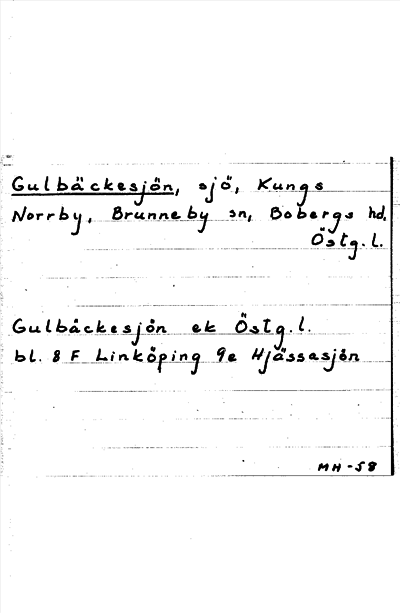 Gulbäckesjön, sjö, Kungs
Norrby, Brunneby sn, Bobergs hd,
Östg.l.
Gulbäckesjön ek Östg.l.
bl. 8 F Linköping 9e Hjässasjön
MH-58